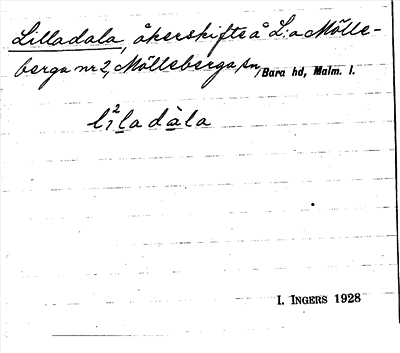 Lilladala, åkerskifte å L:a Mölle-
berga nr 2, Mölleberga sn, Bara hd, Malm. l.
I. INGERS 1928